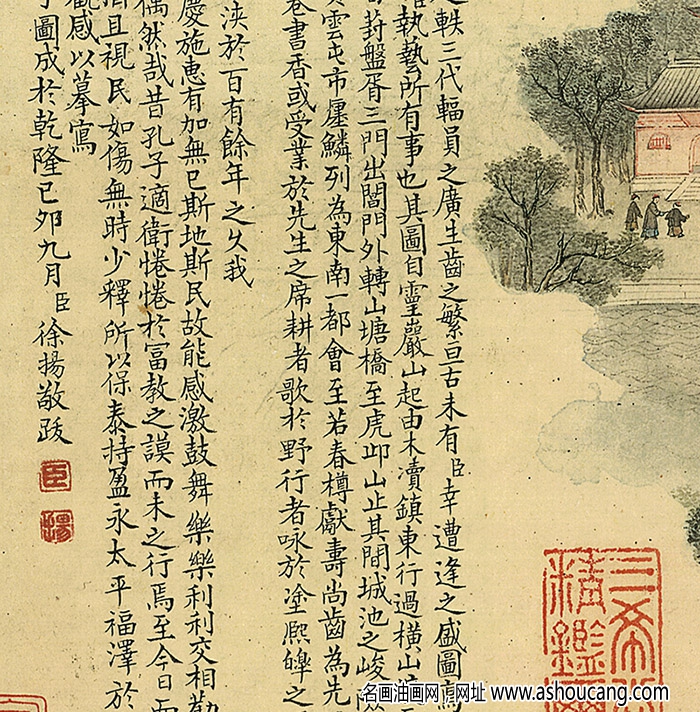 軼三代輻員之廣生齒之繁亘古未有臣幸遭逢之盛圖寫
執藝所有事也其圖自靈巖山起由木瀆鎮東行過橫山
葑盤胥三門出閶門外轉山塘橋至虎邱山止其間城池之峻
雲屯市廛鱗列為東南一都會至若春樽獻壽尚齒為先
書香或受業於先生之席耕者歌於野行者咏於塗熙皥之
浹於百有餘年之久我
慶施惠有加無已斯地斯民故能感激鼓舞樂樂利利交相勸
偶然哉昔孔子適衛惓惓於富教之謨而未之行焉至今日而
且視民如傷無時少釋所以保泰持盈永太平福澤於
觀感以摹寫
圖成於乾隆己卯九月臣徐揚敬跋
臣
揚
三希
精鑑璽
名画油画网 网址 www.ashoucang.com